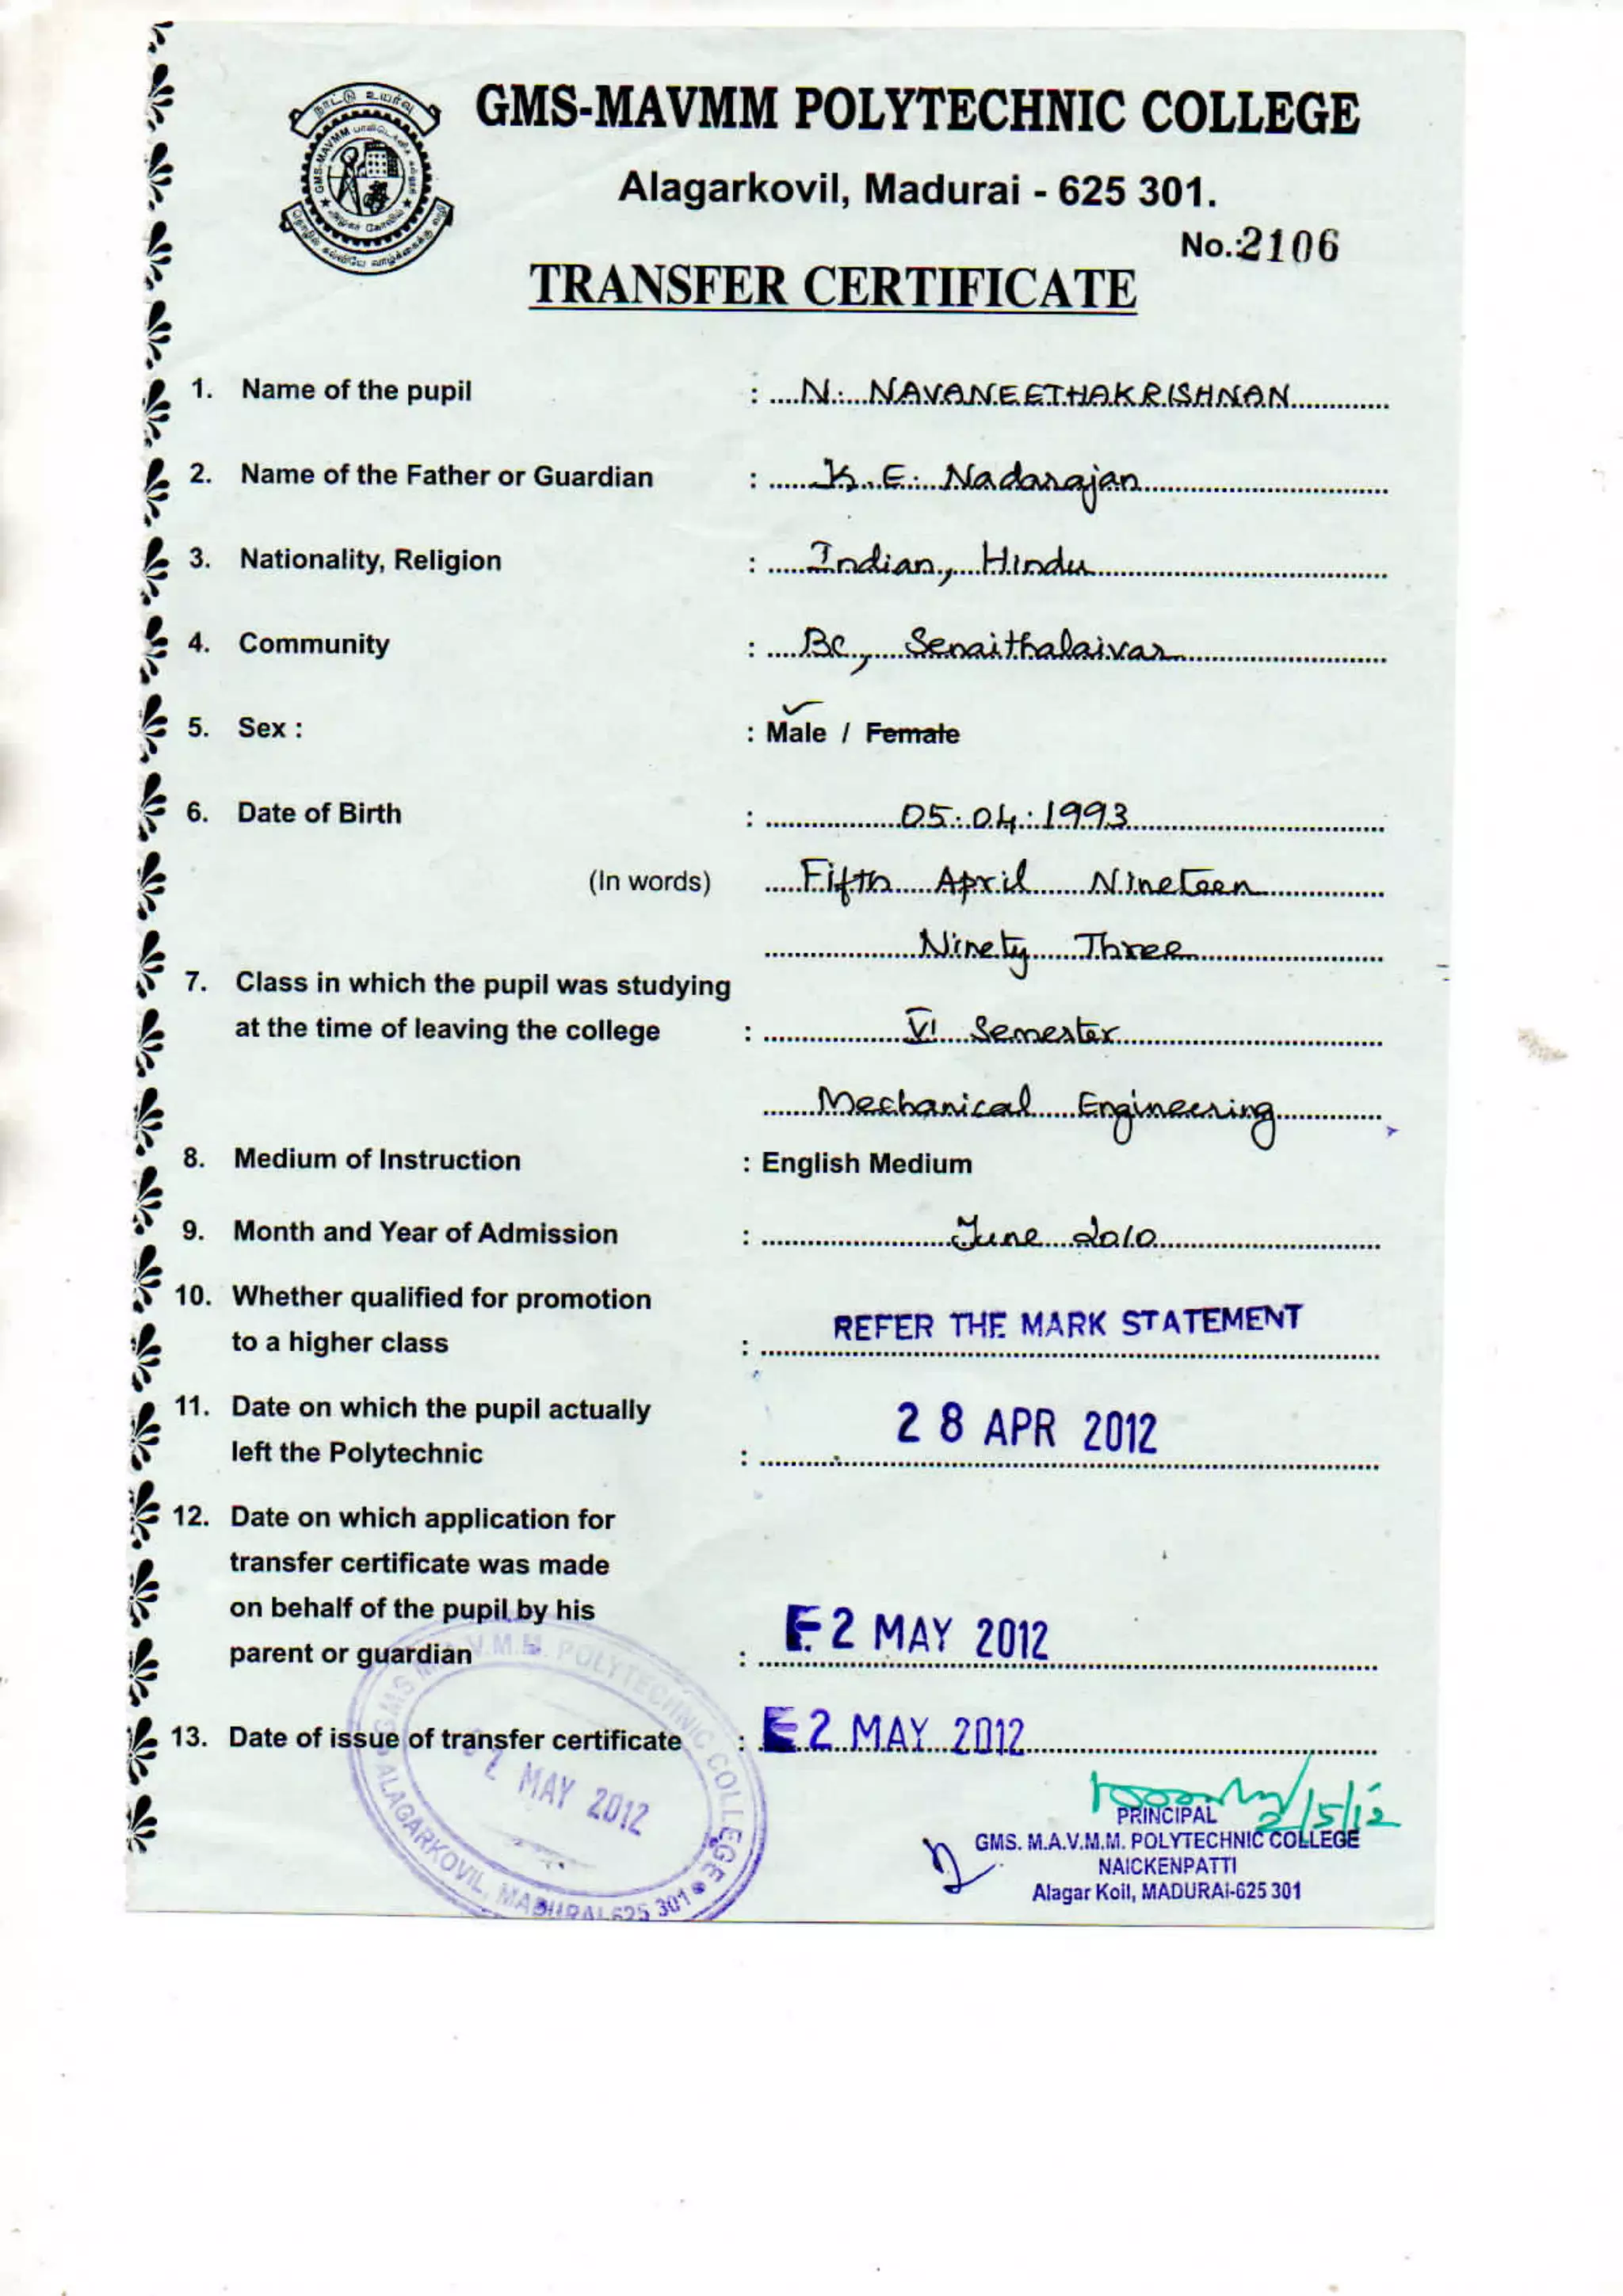 GMS-MAVMM POLYTECHNIC COLLEGE
Alagarkovil, Madurai - 625 301.
No.:2106
TRANSFER CERTIFICATE
1. Name of the pupil : N. NAVANEETHAKRISHNAN
2. Name of the Father or Guardian : K. E. Nadarajan
3. Nationality, Religion : Indian, Hindu
4. Community : BC, Senaithalaivar
5. Sex : : Male / Female
6. Date of Birth : 05.04.1993
(In words) Fifth April Nineteen
Ninety Three
7. Class in which the pupil was studying
at the time of leaving the college : VI Semester
Mechanical Engineering
8. Medium of Instruction : English Medium
9. Month and Year of Admission : June 2010
10. Whether qualified for promotion
to a higher class : REFER THE MARK STATEMENT
11. Date on which the pupil actually
left the Polytechnic : 28 APR 2012
12. Date on which application for
transfer certificate was made
on behalf of the pupil by his
parent or guardian : 2 MAY 2012
13. Date of issue of transfer certificate : 2 MAY 2012
GMS M.A.V.M.M. POLYTECHNIC COLLEGE
ALAGARKOVIL, MADURAI-625 301
2 MAY 2012
2/5/12
PRINCIPAL
GMS. M.A.V.M.M. POLYTECHNIC COLLEGE
NAICKENPATTI
Alagar Koil, MADURAI-625 301